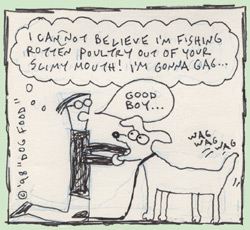 I CAN NOT BELIEVE I'M FISHING
ROTTEN POULTRY OUT OF YOUR
SLIMY MOUTH! I'M GONNA GAG...
GOOD
BOY...
WAG
WAG WAG
© '98 "DOG FOOD"